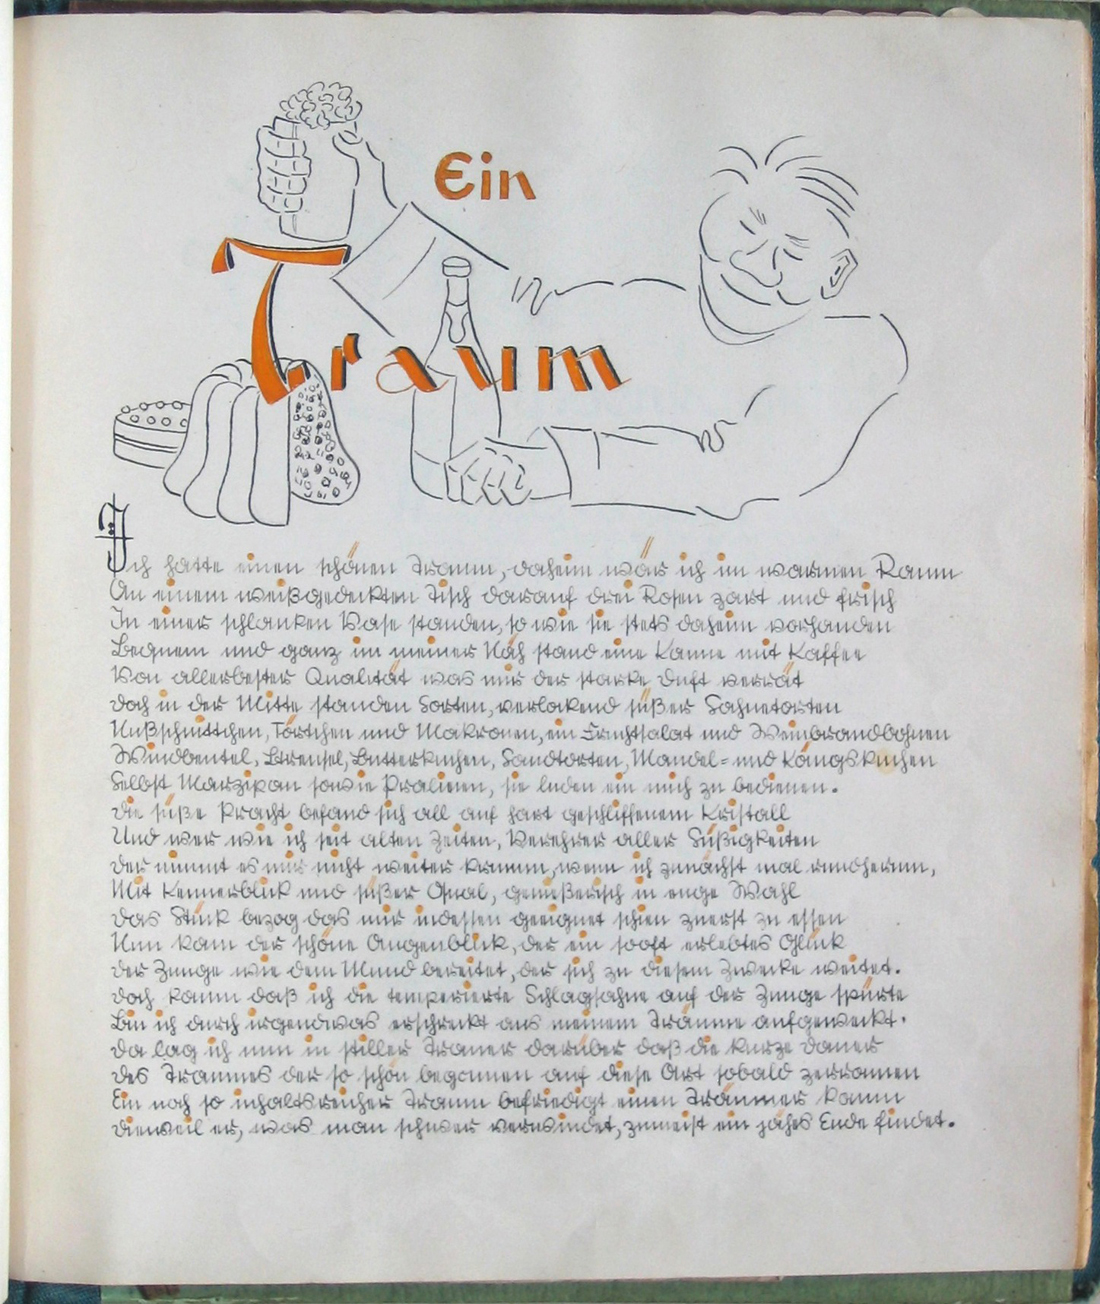 Ein
Traum
Ich hatte einen schönen Traum, daheim wär ich im warmen Raum
An einem weißgedeckten Tisch darauf drei Rosen zart und frisch
In einer schlanken Vase standen, so wie sie stets daheim vorhanden
Bequem und ganz in meiner Näh stand eine Kanne mit Kaffee
Von allerbester Qualität was mir der starke Duft verrät
Doch in der Mitte standen Sorten, verlockend süßer Sahnetorten
Nußschnittchen, Törtchen und Makronen, ein Fruchtsalat und Weinbrandbohnen
Windbeutel, Streusel, Butterkuchen, Sandtorten, Mandel- und Königskuchen
Selbst Marzipan sowie Pralinen, sie luden ein mich zu bedienen.
Die süße Pracht befand sich all auf hart geschliffenem Kristall
Und wer wie ich seit alten Zeiten, Verehrer aller Süßigkeiten
Der nimmt es mir nicht weiter krumm, wenn ich zunächst mal rundherum,
Mit Kennerblick und süßer Qual, genießerisch in enge Wahl
Das Stück bezog das mir indessen geeignet schien zuerst zu essen
Nun kam der schöne Augenblick, der ein sooft erlebtes Glück
Der Zunge wie dem Mund bereitet, der sich zu diesem Zwecke weitet.
Doch kaum daß ich die temperierte Schlagsahne auf der Zunge spürte
Bin ich durch irgendwas erschreckt aus meinem Traume aufgeweckt.
Da lag ich nun in stiller Trauer darüber daß die kurze Dauer
Des Traumes der so schön begonnen auf diese Art sobald zerronnen
Ein noch so inhaltsreicher Traum befriedigt einen Träumer kaum
Dieweil er, was man schwer verwindet, zumeist ein jähes Ende findet.